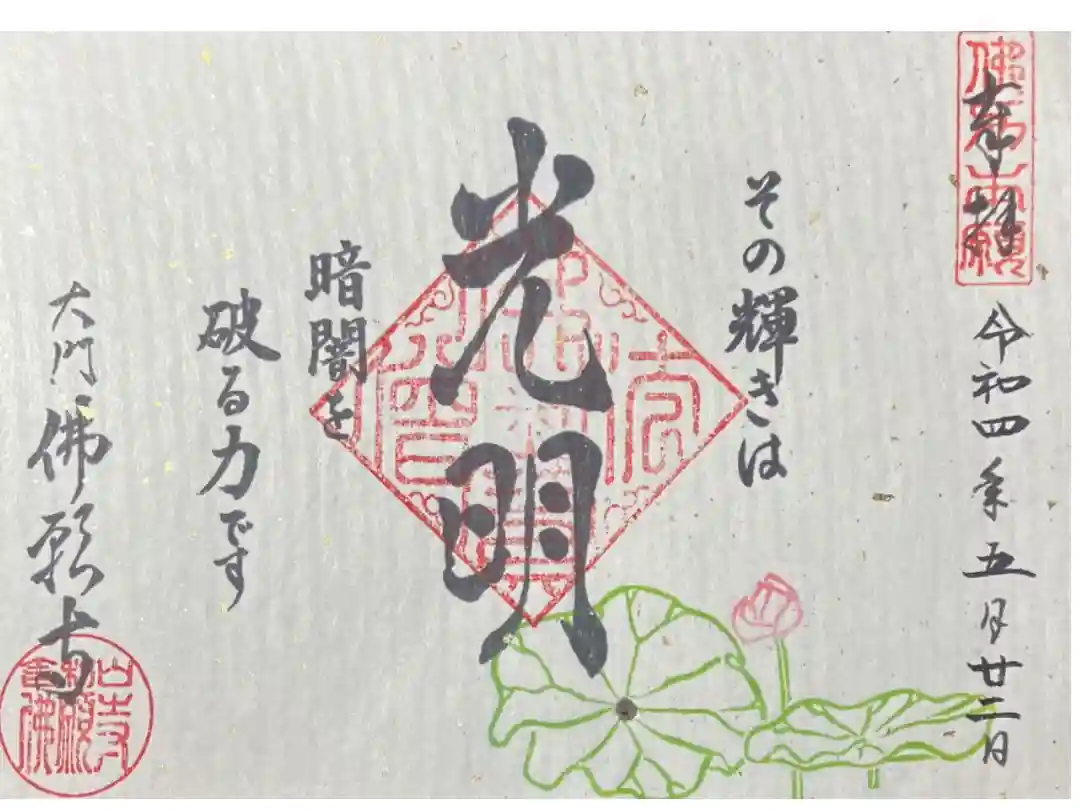 奉拝
令和四年五月廿二日
その輝きは
光明
暗闇を
破る力です
大門佛願寺